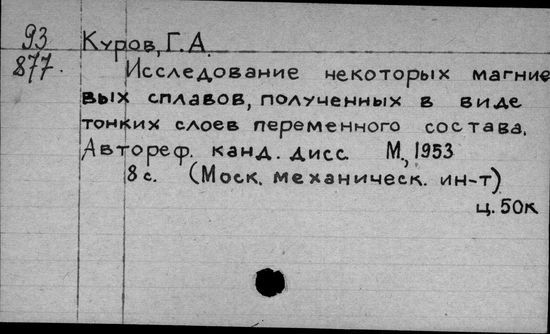 93
877.
Куров, Г. А.
Исследование некоторых магние
вых сплавов, полученных в виде
тонких слоев переменного состава.
Автореф. канд. дисс. М., 1953
8 с. (Моск. механическ. ин-т)
ц. 50к